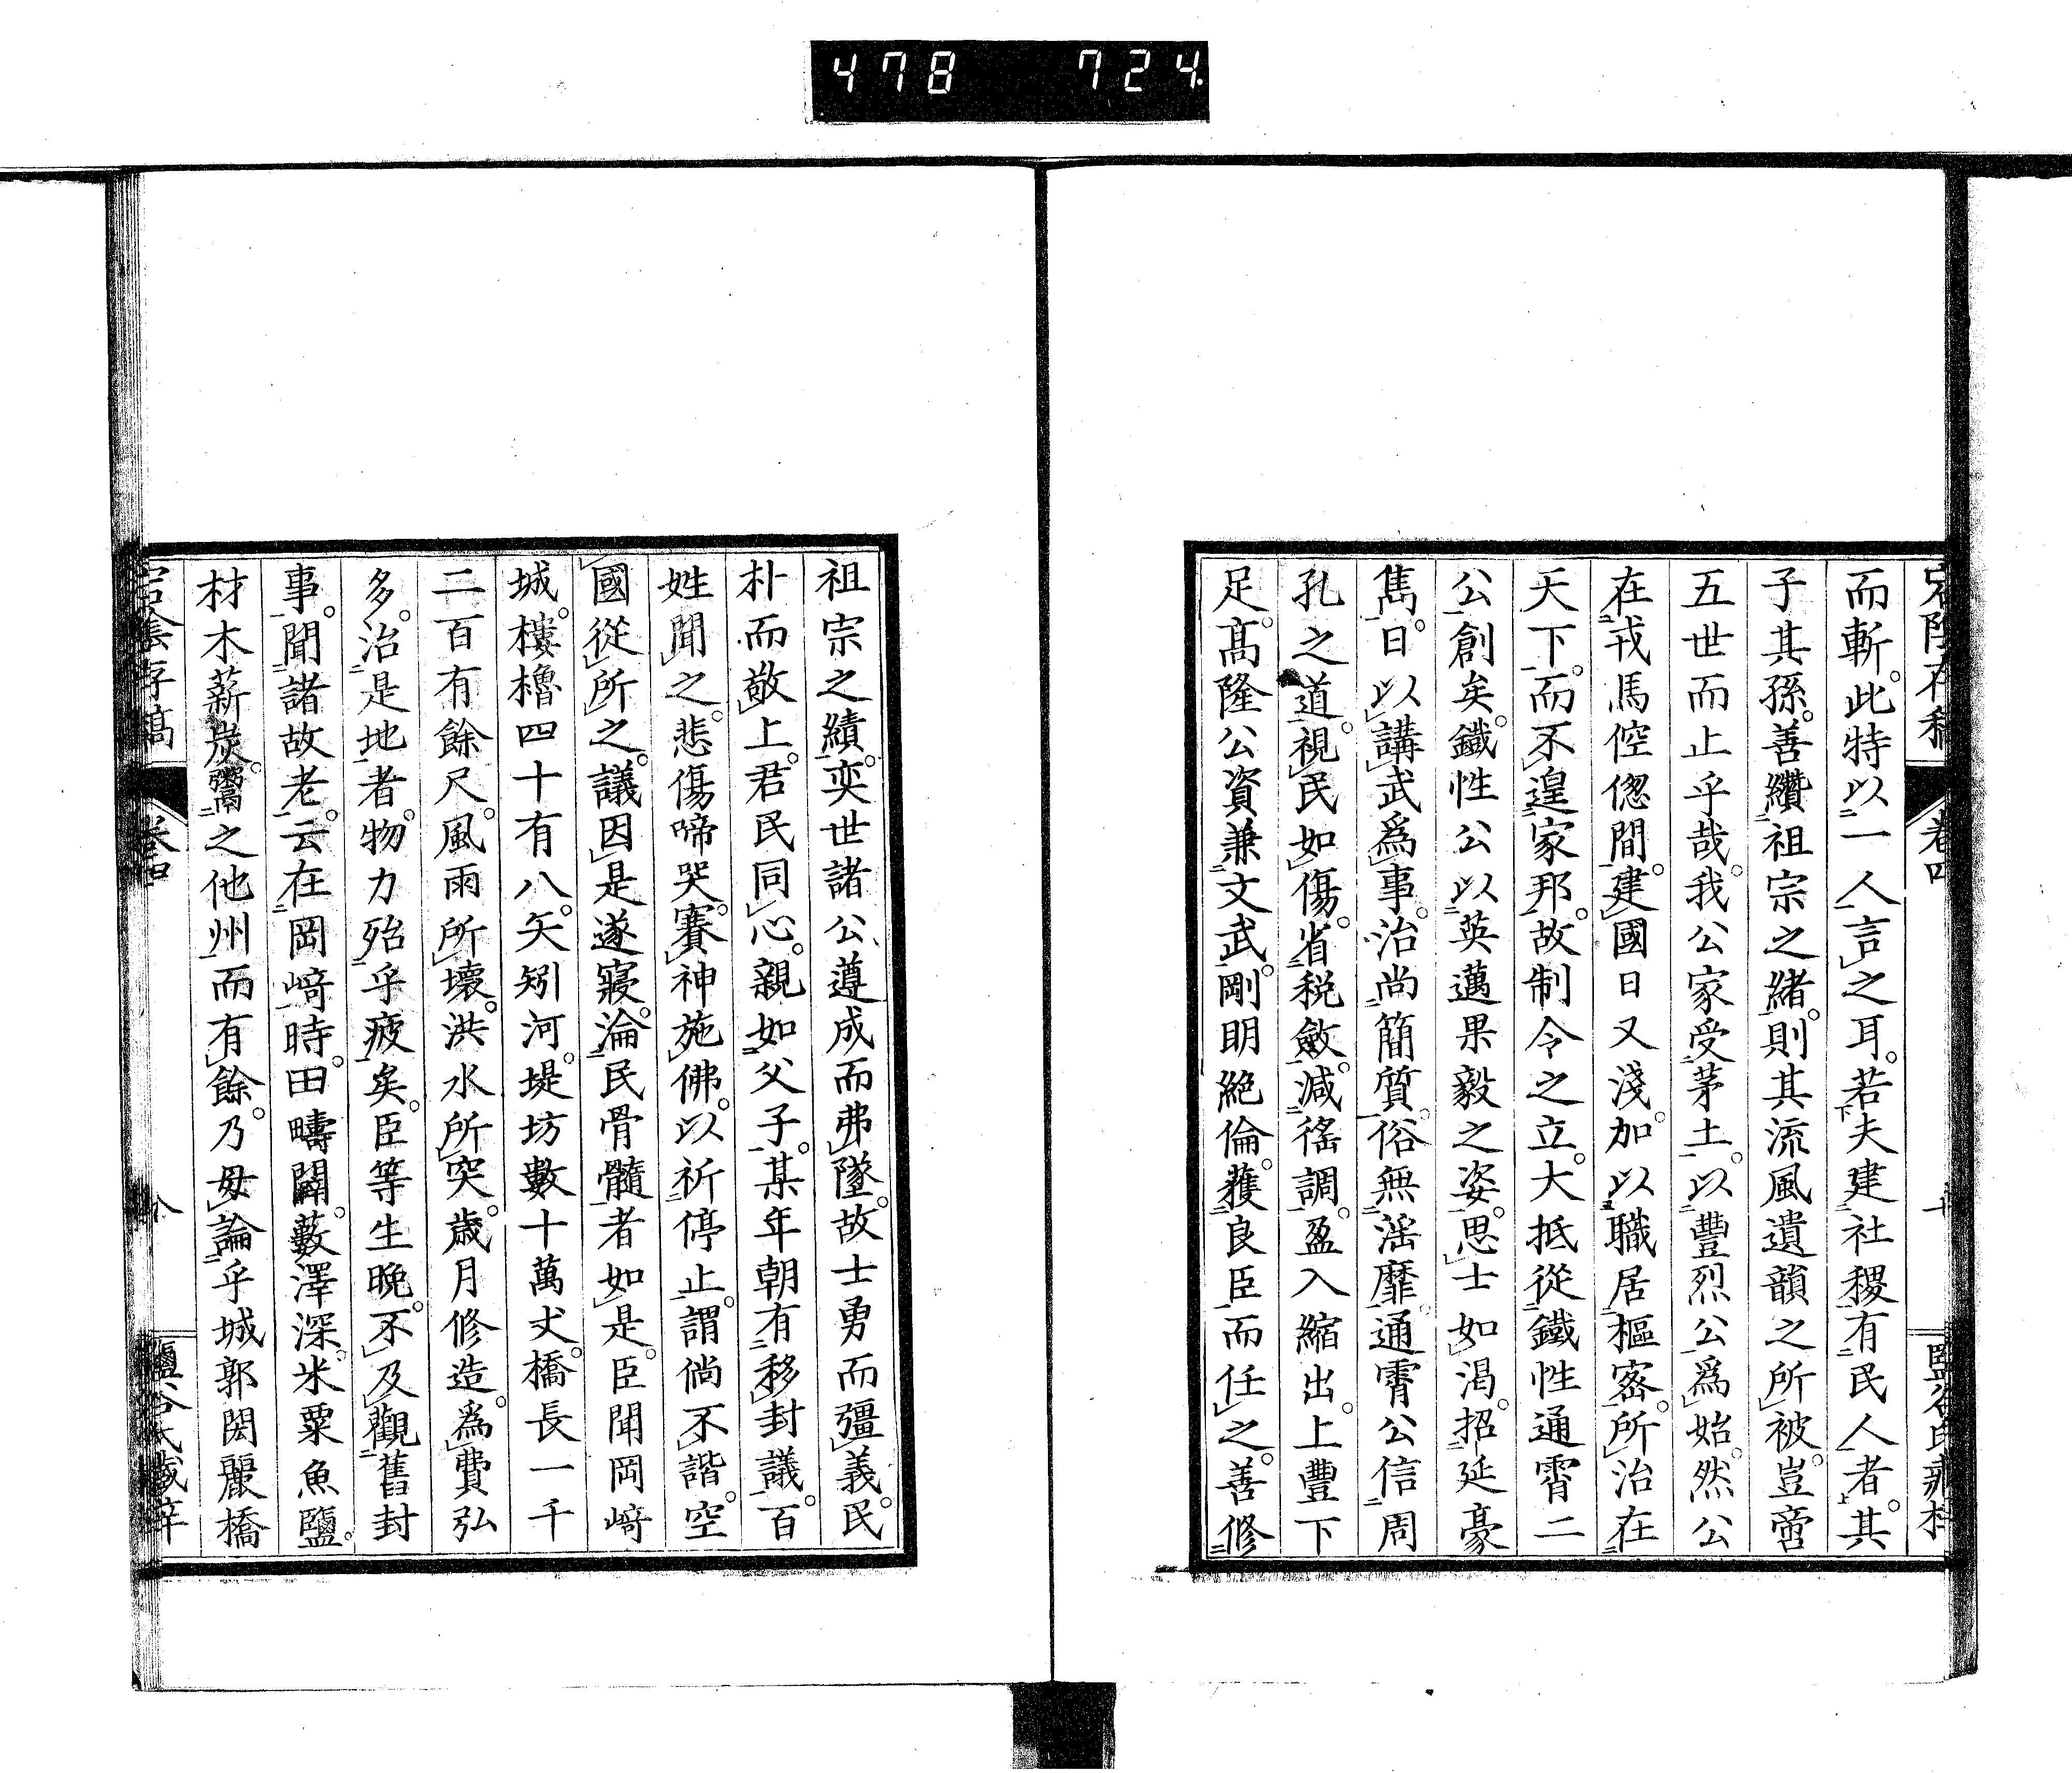 478 724
而斬。此特以一人言之耳。若夫建社稷有民人者。其
子其孫。善纘祖宗之緒。則其流風遺韻之所被。豈啻
五世而止乎哉。我公家受茅土。以豐烈公爲始。然公
在戎馬倥偬間。建國日又淺。加以職居樞密。所治在
天下。而不遑家邦。故制令之立。大抵從鐵性通霄二
公創矣。鐵性公以英邁果毅之姿。思士如渴。招延豪
雋。日以講武爲事。治尚簡質。俗無滛靡。通霄公信周
孔之道。視民如傷。省税斂。減徭調。盈入縮出。上豐下
足。高隆公資兼文武。剛明絶倫。蒦良臣而任之。善修
祖宗之績。奕世諸公、遵成而弗墜。故士勇而彊義。民
朴而敬上。君民同心。親如父子。某年朝有移封議。百
姓聞之。悲傷啼哭。賽神施佛。以祈停止。謂倘不諧。空
國從所之。議因是遂寢。淪民骨髓者如是。臣聞岡﨑
城。樓櫓四十有八矢。矧河。堤坊數十萬丈。橋長一千
二百有餘尺。風雨所壞。洪水所突。歳月修造。爲費弘
多。治是地者。物力殆乎疲矣。臣等生晚。不及觀舊封
事。聞諸故老。云在岡﨑時。田疇闢。藪澤深。米粟魚鹽。
材木薪炭。鬻之他州而有餘。乃毋論乎城郭閎麗橋
存稿 卷四